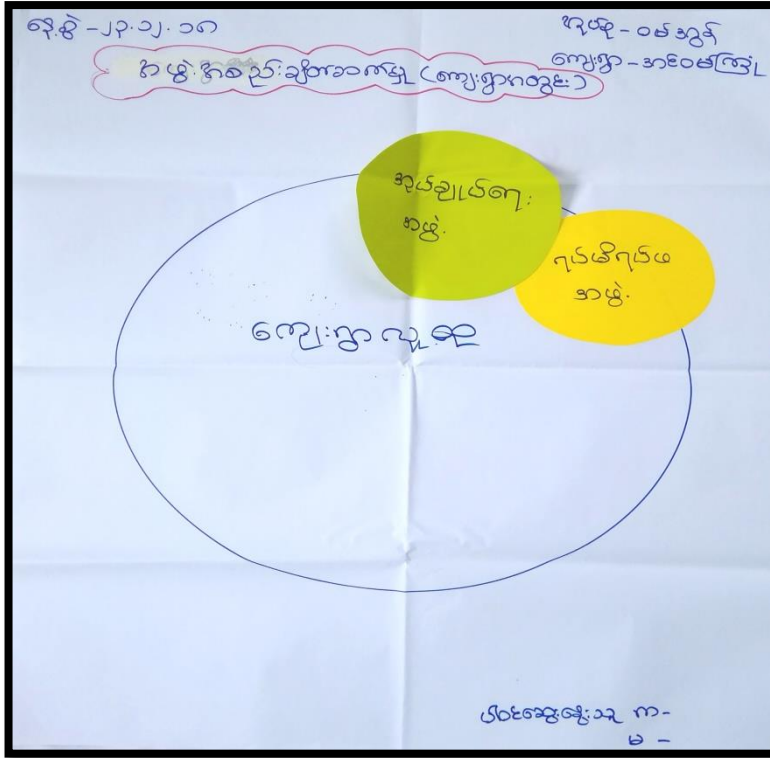 နေ့စွဲ - ၂၃.၁၂.၁၈
အုပ်စု - ဝမ်အွန်
ကျေးရွာ - အင်ဝမ်ကြုံ
အဖွဲ့အစည်းချိတ်ဆက်မှု (ကျေးရွာတွင်း)
အုပ်ချုပ်ရေး
အဖွဲ့
ရပ်မိရပ်ဖ
အဖွဲ့
ကျေးရွာလူထု
ပါဝင်ဆွေးနွေးသူ ကျ-
မ -